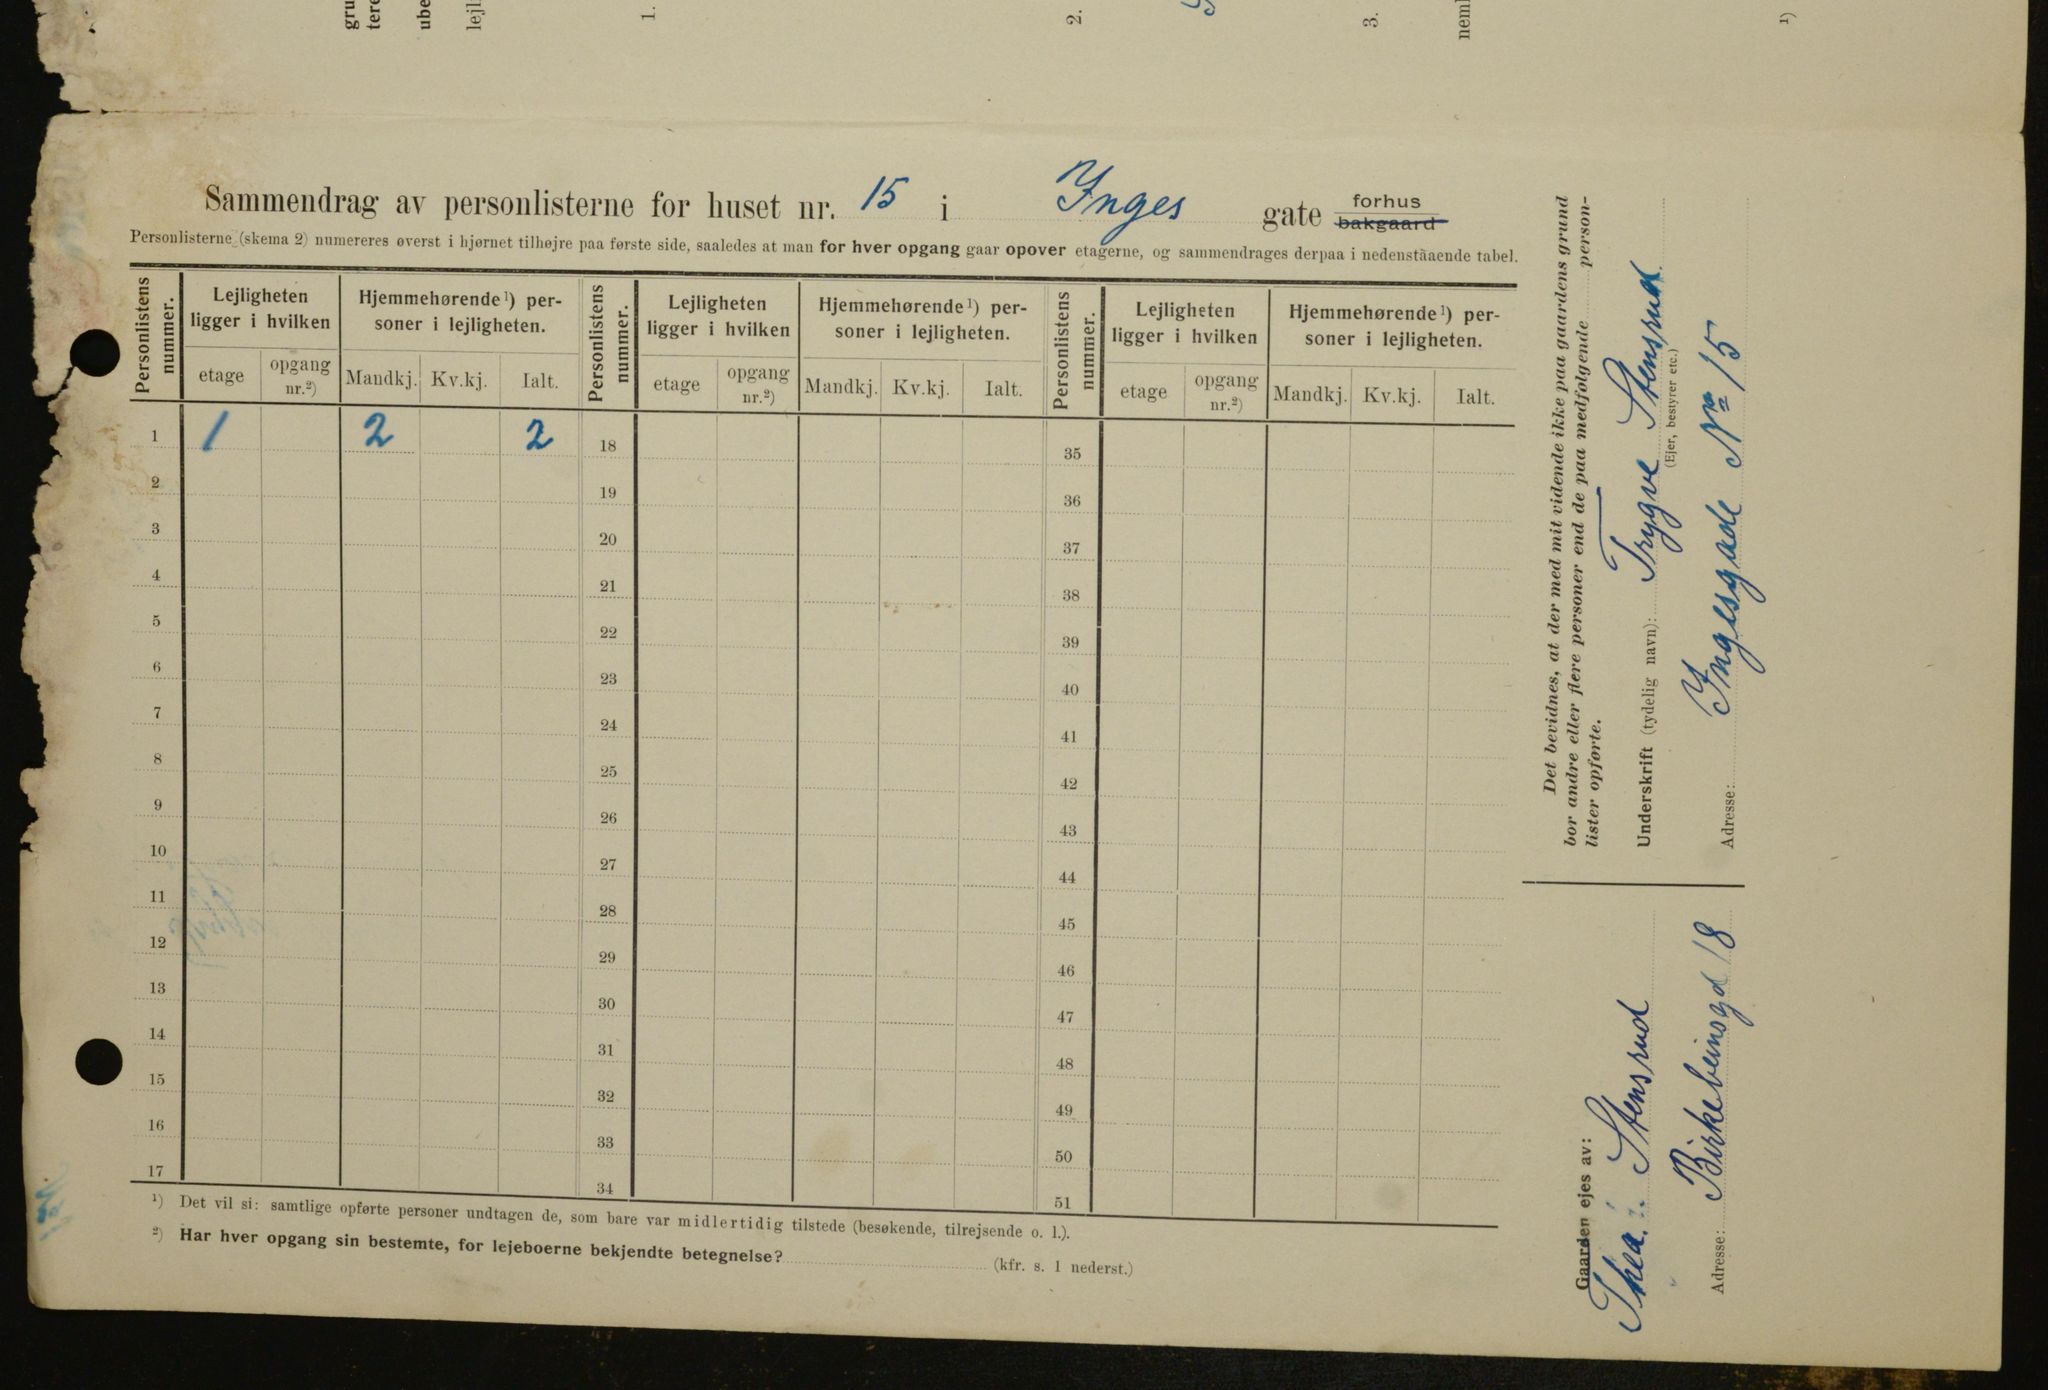 gru
tere
ube
lejl
1.
2.
3.
neml
1)
Sammendrag av personlisterne for huset nr. 15 i Ynges gate forhus
bakgaard
Personlisterne (skema 2) numereres øverst i hjørnet tilhøjre paa første side, saaledes at man for hver opgang gaar opover etagerne, og sammendrages derpaa i nedenstaaende tabel.
Personlistens nummer. Lejligheten ligger i hvilken Hjemmehørende¹) personer i lejligheten. Personlistens nummer. Lejligheten ligger i hvilken Hjemmehørende¹) per-soner i lejligheten. Personlistens nummer. Lejligheten ligger i hvilken Hjemmehørende¹) per-soner i lejligheten.
etage opgang nr.²) Mandkj. Kv.kj. Ialt. etage opgang nr.²) Mandkj. Kv.kj. Ialt. etage opgang nr.²) Mandkj. Kv.kj. Ialt.
1 1 2 2 18 35
2 19 36
3 20 37
4 21 38
5 22 39
6 23 40
7 24 41
8 25 42
9 26 43
10 27 44
11 28 45
12 29 46
13 30 47
14 31 48
15 32 49
16 33 50
17 34 51
¹) Det vil si: samtlige opførte personer undtagen de, som bare var midlertidig tilstede (besøkende, tilrejsende o. l.).
²) Har hver opgang sin bestemte, for lejeboerne bekjendte betegnelse? (kfr. s. 1 nederst.)
Det bevidnes, at der med mit vidende ikke paa gaardens grund
bor andre eller flere personer end de paa medfølgende person-
lister opførte.
Underskrift (tydelig navn): Trygve Stensrud
(Ejer, bestyrer etc.)
Adresse: Yngesgade No 15
Gaarden ejes av:
Thea Stensrud
Adresse: Birkebeinsgd 18